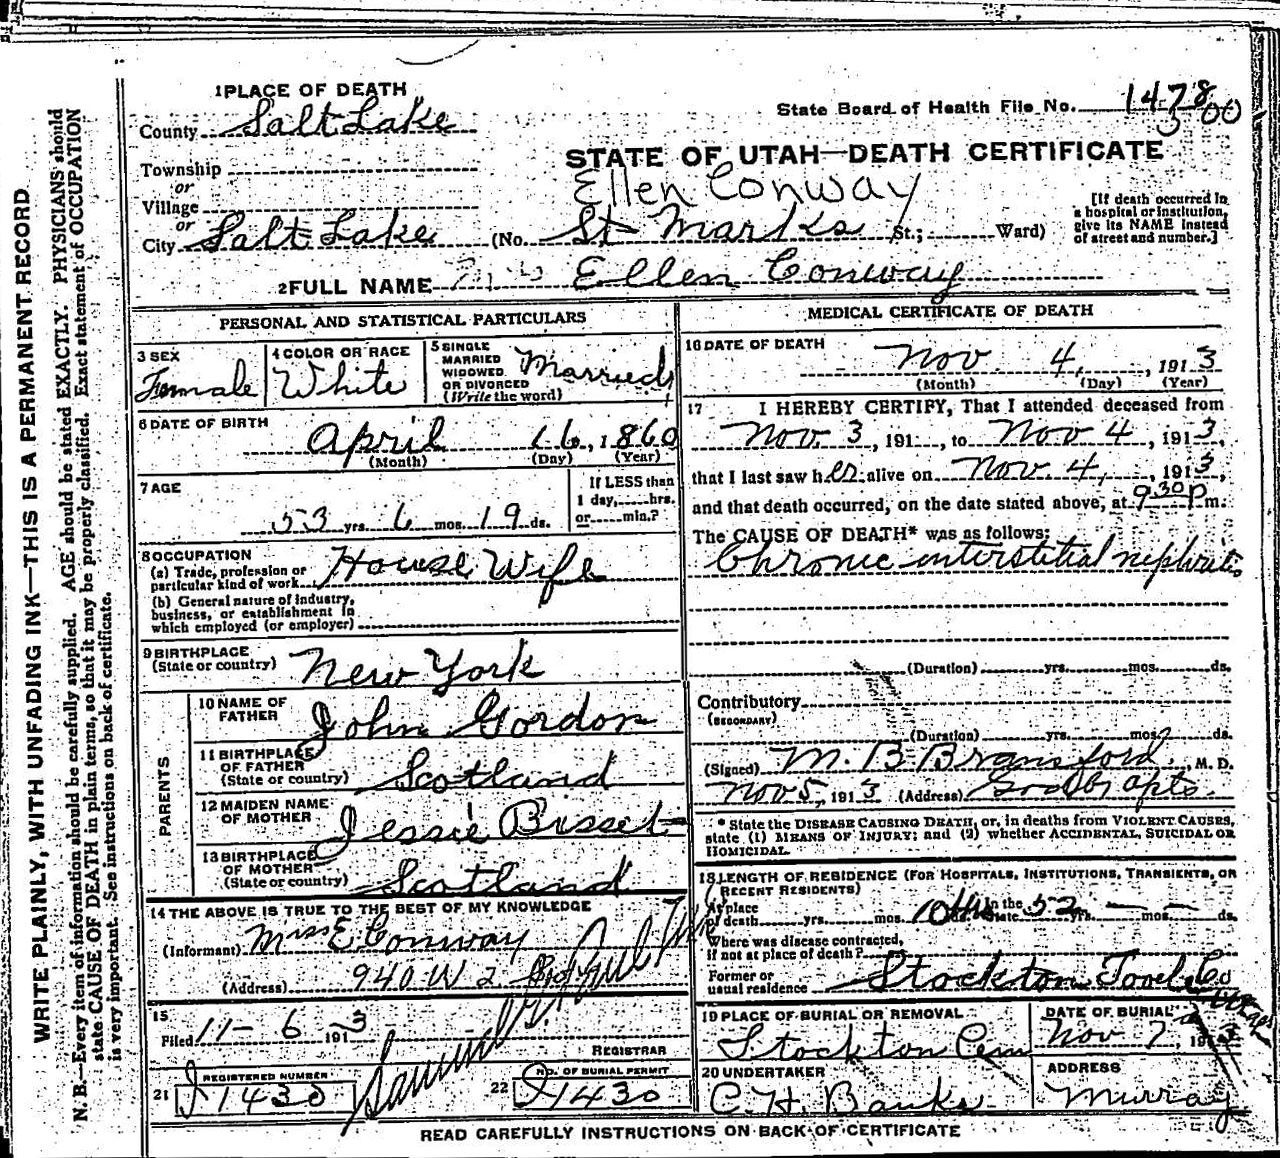 1 PLACE OF DEATH
County Salt Lake
State Board of Health File No. 1478
300
Township
STATE OF UTAH—DEATH CERTIFICATE
or
Village
Ellen Conway
or
City Salt Lake (No. St Marks St.; Ward)
[If death occurred in a hospital or institution, give its NAME instead of street and number.]
2 FULL NAME Mrs Ellen Conway
PERSONAL AND STATISTICAL PARTICULARS
3 SEX
Female
4 COLOR OR RACE
White
5 SINGLE
MARRIED
WIDOWED
OR DIVORCED
(Write the word)
Married
6 DATE OF BIRTH
April 16, 1860
(Month) (Day) (Year)
7 AGE
53 yrs. 6 mos. 19 ds.
If LESS than
1 day, hrs.
or min.?
8 OCCUPATION
(a) Trade, profession or
particular kind of work House Wife
(b) General nature of industry,
business, or establishment in
which employed (or employer)
9 BIRTHPLACE
(State or country) New York
PARENTS
10 NAME OF
FATHER John Gordon
11 BIRTHPLACE
OF FATHER
(State or country) Scotland
12 MAIDEN NAME
OF MOTHER Jessie Bisset
13 BIRTHPLACE
OF MOTHER
(State or country) Scotland
14 THE ABOVE IS TRUE TO THE BEST OF MY KNOWLEDGE
(Informant) Miss E Conway
(Address) 940 W 2
15
Filed 11-6 1913
REGISTRAR
21 REGISTERED NUMBER
J1430
22 NO. OF BURIAL PERMIT
J1430
MEDICAL CERTIFICATE OF DEATH
16 DATE OF DEATH
Nov. 4, 1913
(Month) (Day) (Year)
17 I HEREBY CERTIFY, That I attended deceased from
Nov. 3, 191 , to Nov 4, 1913,
that I last saw her alive on Nov. 4, 1913,
and that death occurred, on the date stated above, at 9 30 P m.
The CAUSE OF DEATH* was as follows:
Chronic interstitial nephritis
(Duration) yrs. mos. ds.
Contributory
(SECONDARY)
(Duration) yrs. mos. ds.
(Signed) M. B Bransford, M. D.
Nov 5, 1913 (Address) apts.
* State the DISEASE CAUSING DEATH, or, in deaths from VIOLENT CAUSES,
state (1) MEANS OF INJURY; and (2) whether ACCIDENTAL, SUICIDAL OR
HOMICIDAL.
18 LENGTH OF RESIDENCE (FOR HOSPITALS, INSTITUTIONS, TRANSIENTS, OR
RECENT RESIDENTS)
At place
of death yrs. mos. 10 In the State 52 yrs. — mos. — ds.
Where was disease contracted,
if not at place of death?
Former or
usual residence Stockton Tooele Co
19 PLACE OF BURIAL OR REMOVAL
Stockton Cem
DATE OF BURIAL
Nov 7 1913
20 UNDERTAKER
C. H. Banks
ADDRESS
Murray
READ CAREFULLY INSTRUCTIONS ON BACK OF CERTIFICATE
WRITE PLAINLY, WITH UNFADING INK—THIS IS A PERMANENT RECORD
N. B.—Every item of information should be carefully supplied. AGE should be stated EXACTLY. PHYSICIANS should
state CAUSE OF DEATH in plain terms, so that it may be properly classified. Exact statement of OCCUPATION
is very important. See instructions on back of certificate.